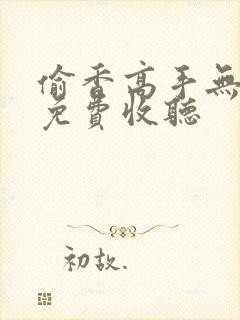 偷香高手無
免費收聽
初故.